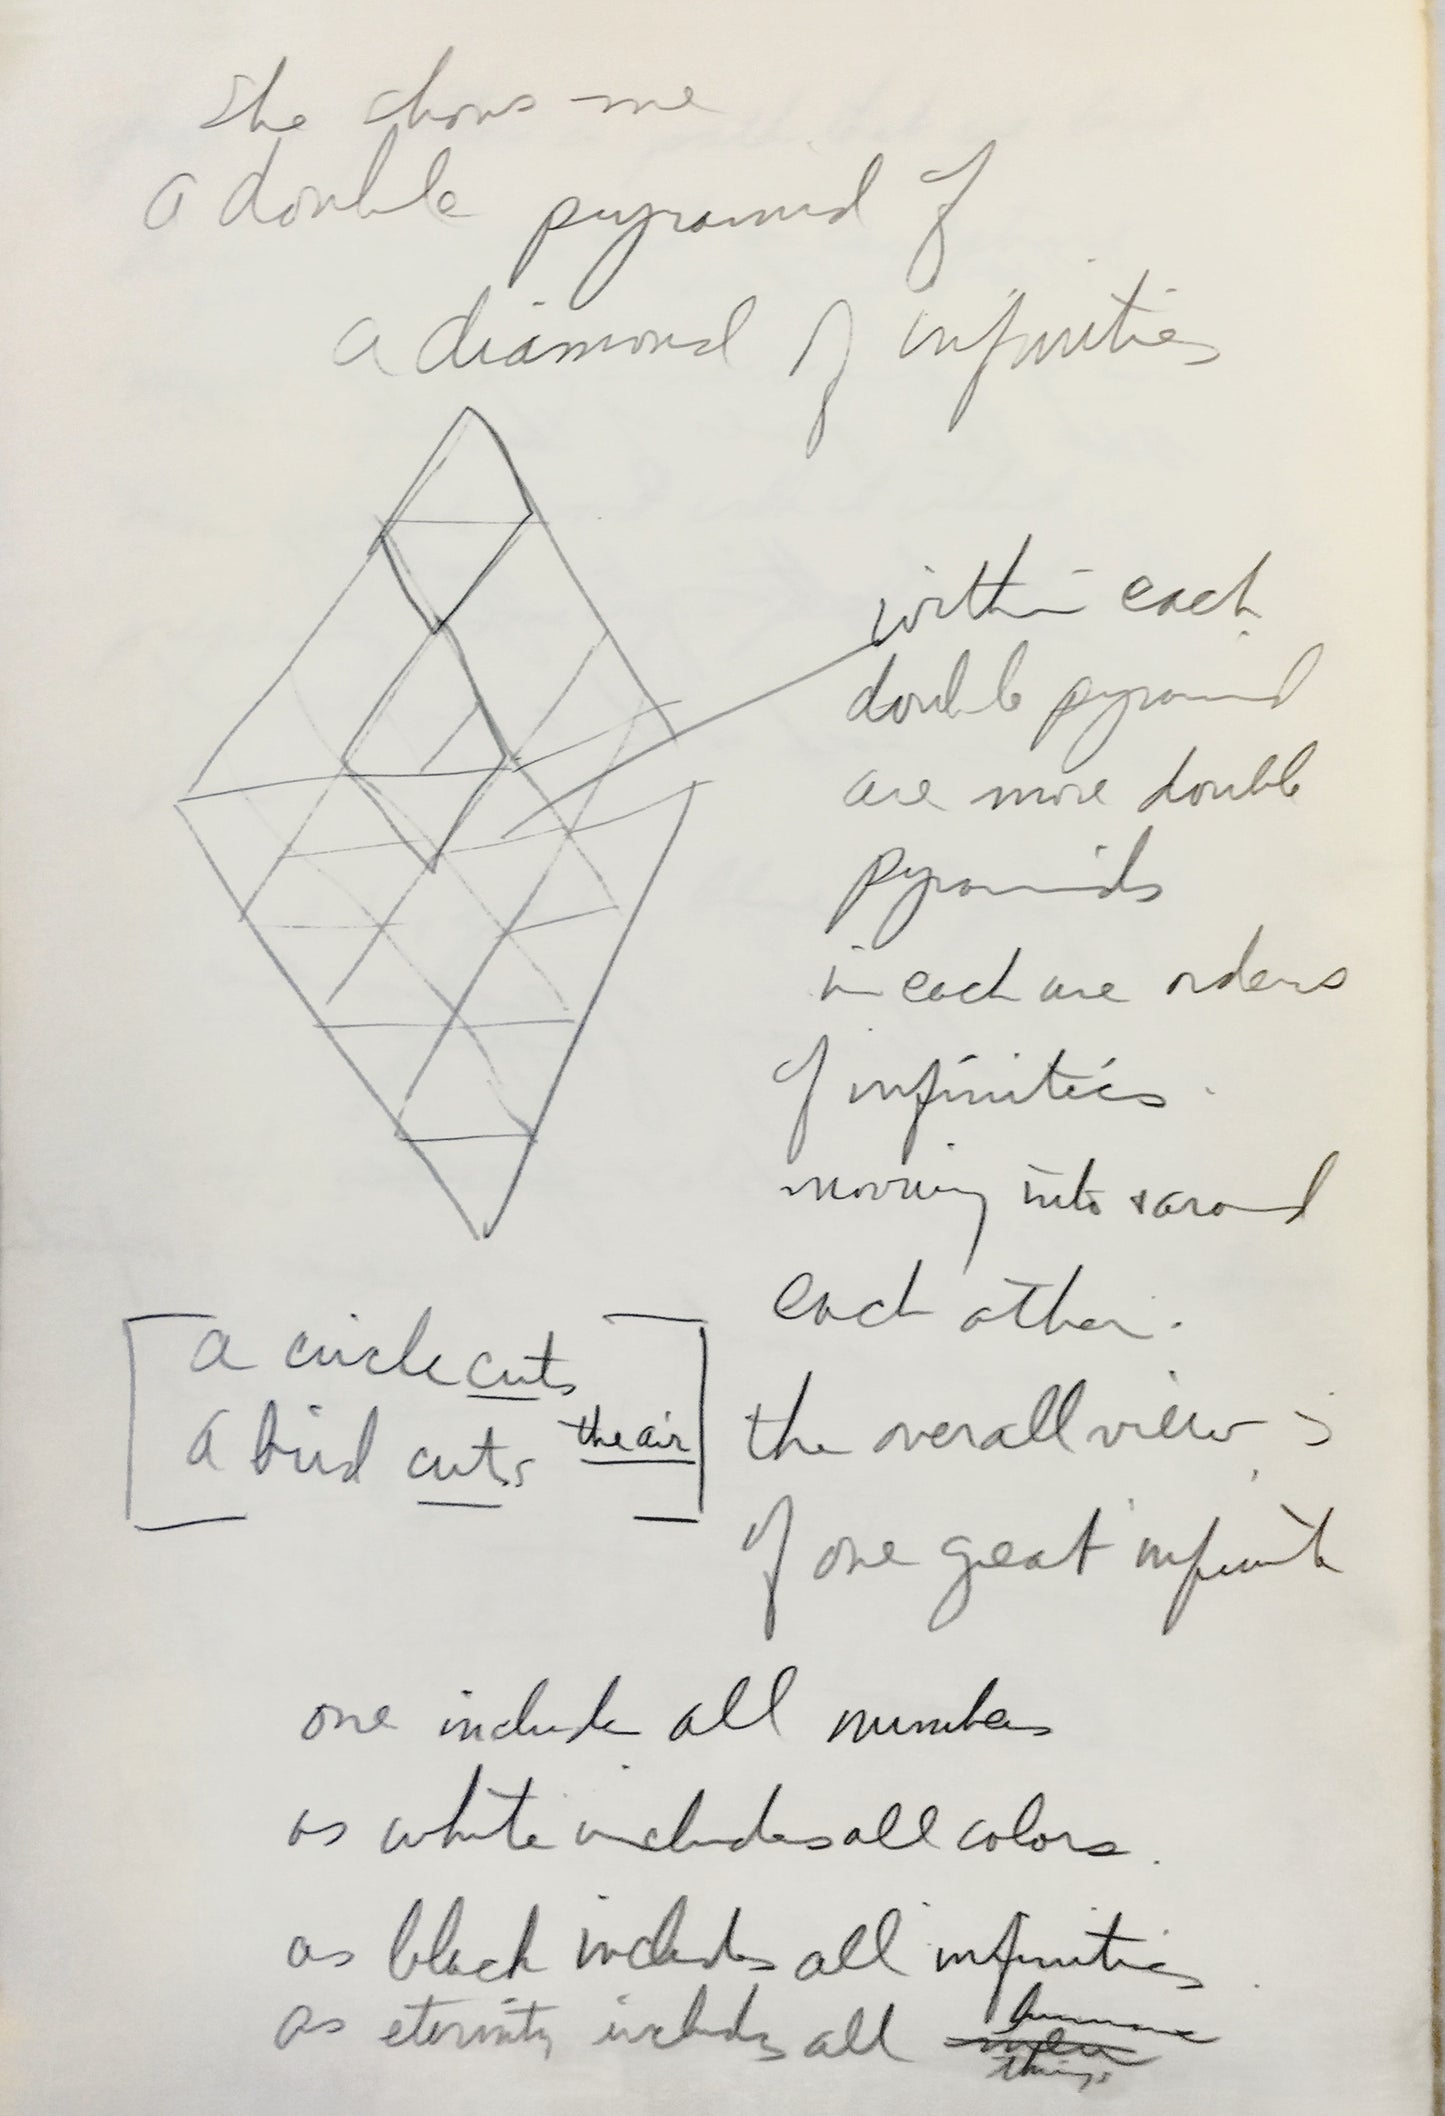 She shows me
a double pyramid of
a diamond of infinities
within each
double pyramid
are more double
pyramids
in each are orders
of infinities.
moving into & around
each other.
the overall view is
of one great infinite
a circle cuts
a bird cuts the air
one include all numbers
as white includes all colors.
as black includes all infinities.
as eternity includes all
things